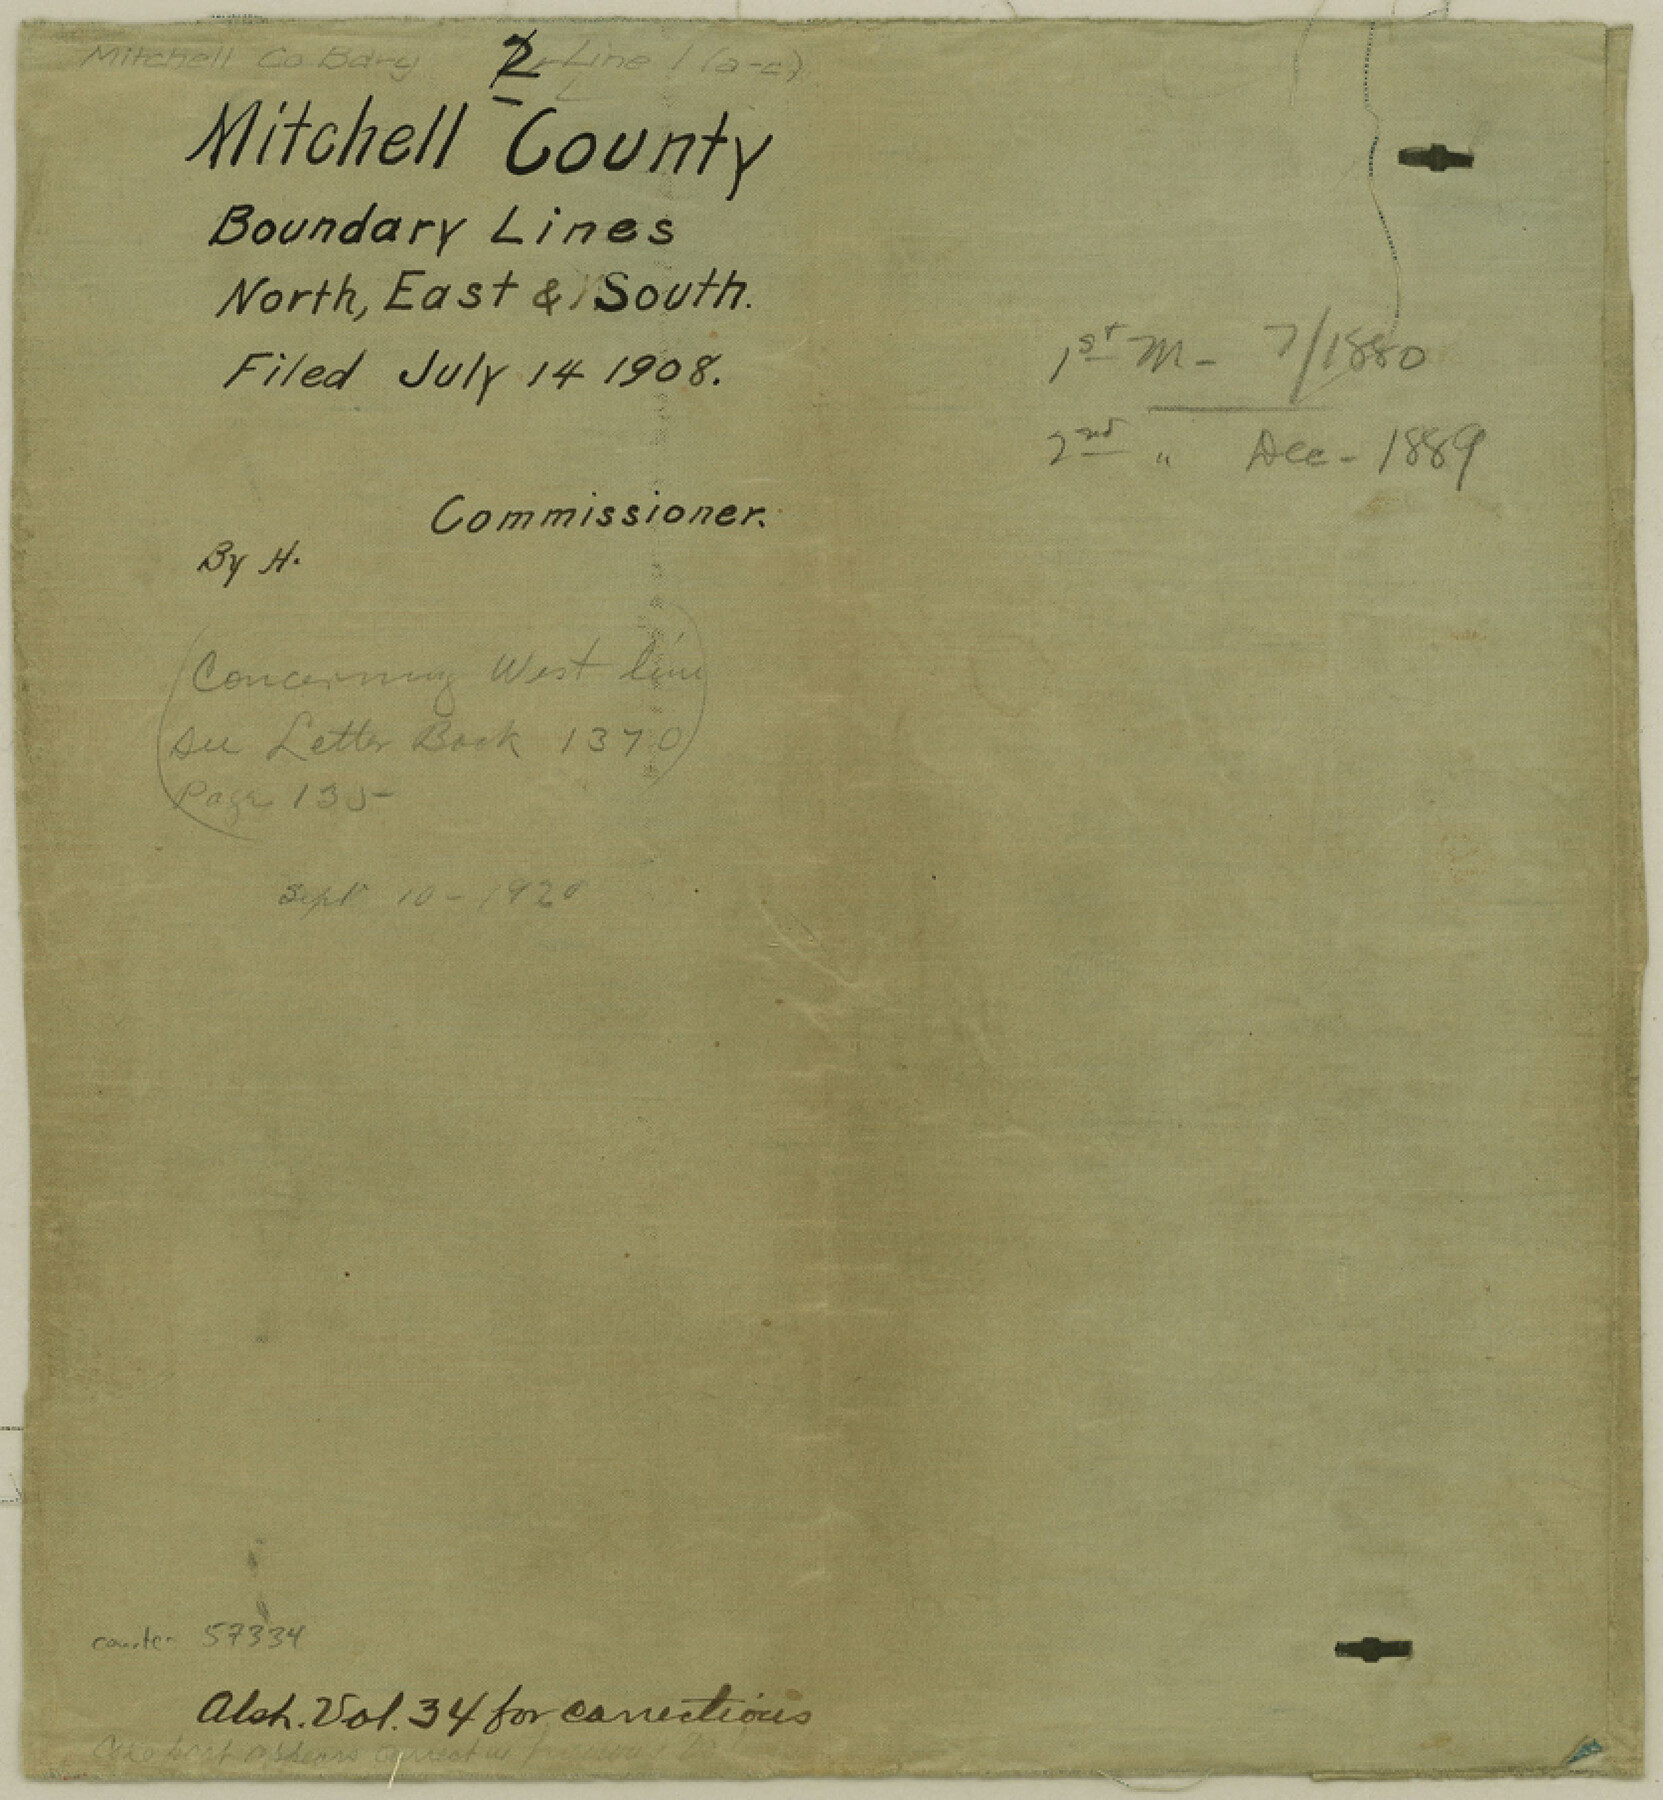 Mitchell Co Bdry Line 1 (a-c)
2
Mitchell County
Boundary Lines
North, East & South.
Filed July 14 1908.
Commissioner.
By H.
(Concerning West line
see Letter Book 1370
Page 135)
Sept 10 - 1920
counter 57334
Absh. Vol. 34 for corrections
1st M - 7/1880
2nd " Dec - 1889